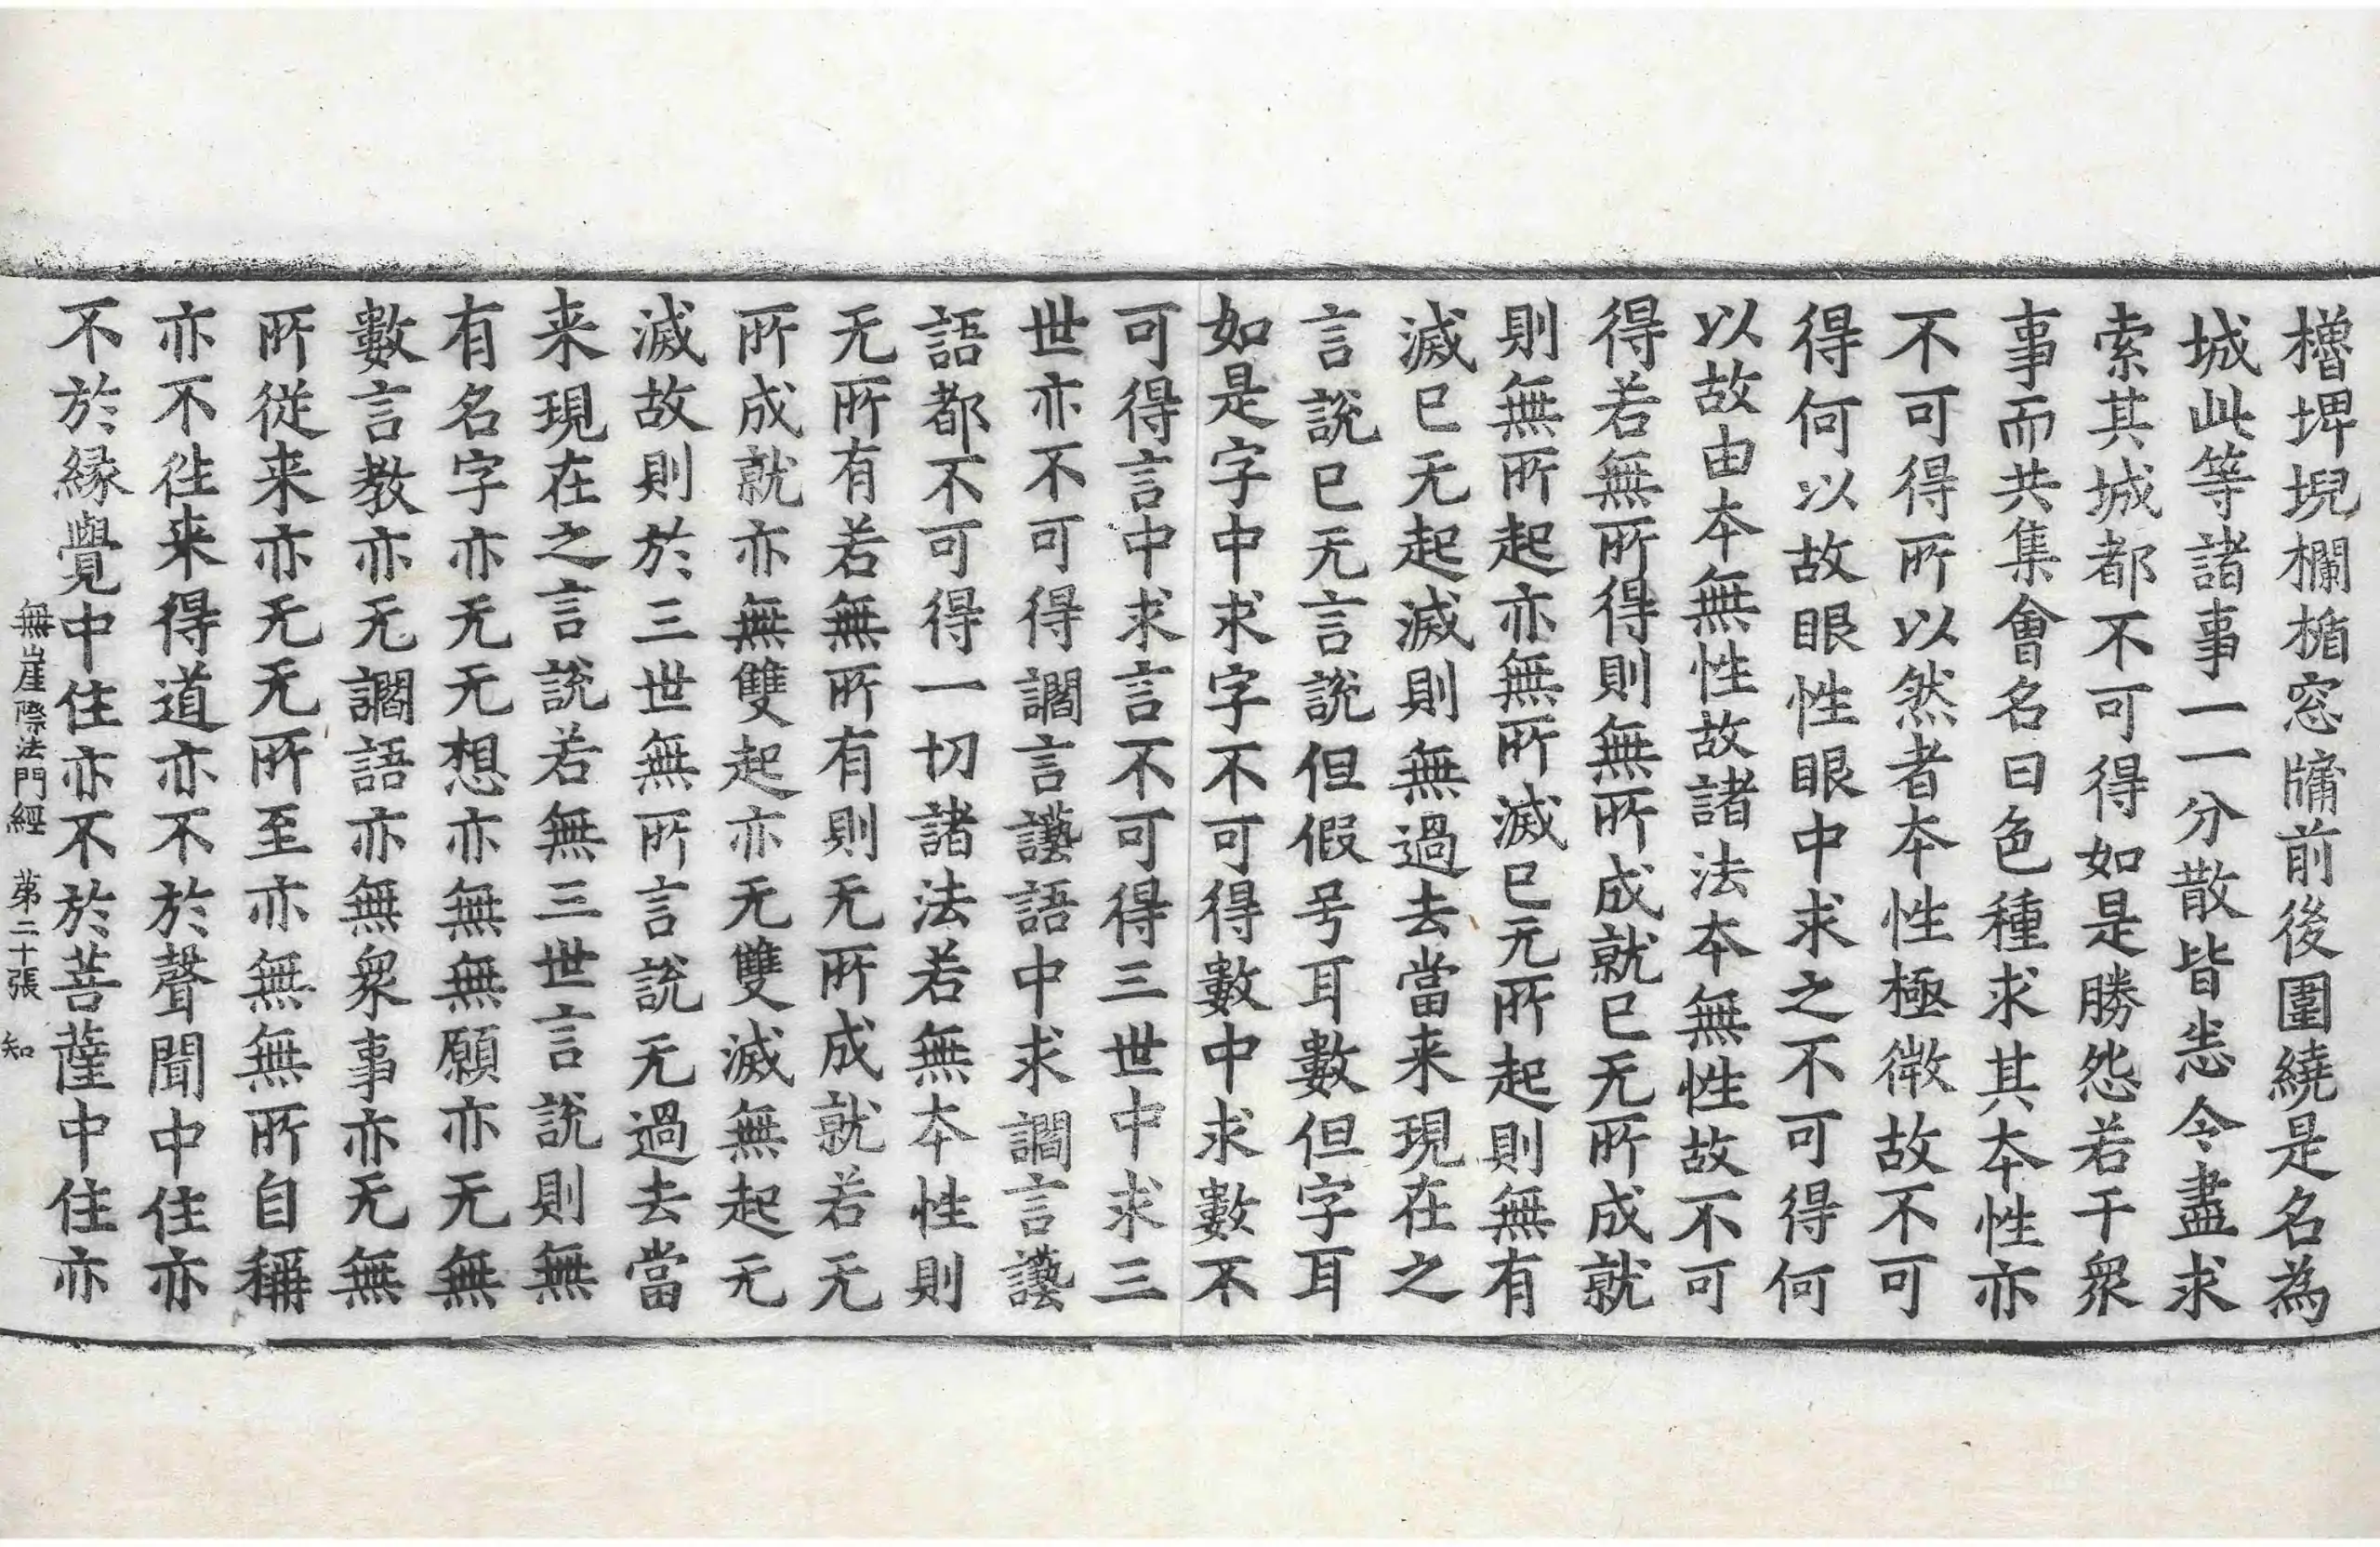 櫓埤堄欄楯窓牖前後圍繞是名為
城此等諸事一一分散皆悉令盡求
索其城都不可得如是勝怨若干衆
事而共集會名曰色種求其本性亦
不可得所以然者本性極微故不可
得何以故眼性眼中求之不可得何
以故由本無性故諸法本無性故不可
得若無所得則無所成就已无所成就
則無所起亦無所滅已无所起則無有
滅已无起滅則無過去當来現在之
言說已无言說但假号耳數但字耳
如是字中求字不可得數中求數不
可得言中求言不可得三世中求三
世亦不可得讇言讛語中求讇言讛
語都不可得一切諸法若無本性則
无所有若無所有則无所成就若无
所成就亦無雙起亦无雙滅無起无
滅故則於三世無所言說无過去當
来現在之言說若無三世言說則無
有名字亦无无想亦無無願亦无無
數言教亦无讇語亦無衆事亦无無
所從来亦无无所至亦無無所自稱
亦不往来得道亦不於聲聞中住亦
不於緣覺中住亦不於菩薩中住亦
無崖際法門經 第二十張 知